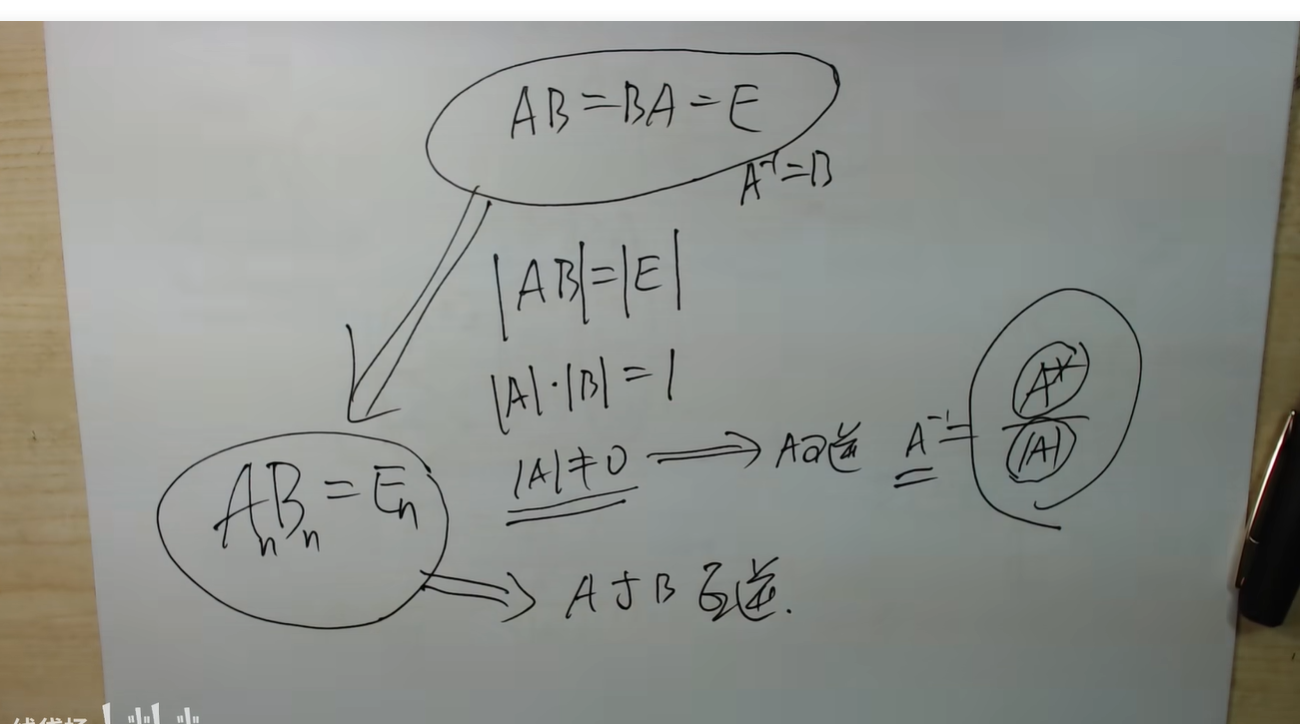 AB=BA=E
A⁻¹=B
|AB|=|E|
|A|·|B|=1
|A|≠0 ⟹ A可逆 A⁻¹=A*/|A|
AₙBₙ=Eₙ
⟹ A与B互逆.